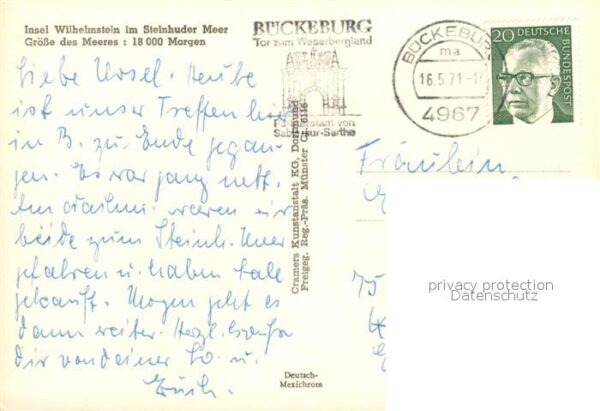 Insel Wilhelmstein im Steinhuder Meer
Größe des Meeres : 18 000 Morgen
Liebe Ursel. Heute
ist unser Treffen hier
in B. zu Ende gegan-
gen. Es war ganz nett.
waren wir
beide zum Steinh. Meer
gefahren u. haben Aale
gekauft. Morgen geht es
dann weiter. Herzl. Grüße
dir von deiner u.
Erich.
BÜCKEBURG
Tor zum Weserbergland
Sablé-sur-Sarthe
BÜCKEBURG
ma
16.5.71
4967
20 DEUTSCHE
BUNDESPOST
Cramers Kunstanstalt KG, Dortmund
Freigeg. Reg.-Präs. Münster
Fräulein
75
privacy protection
Datenschutz
Deutsch-
Mexichrom